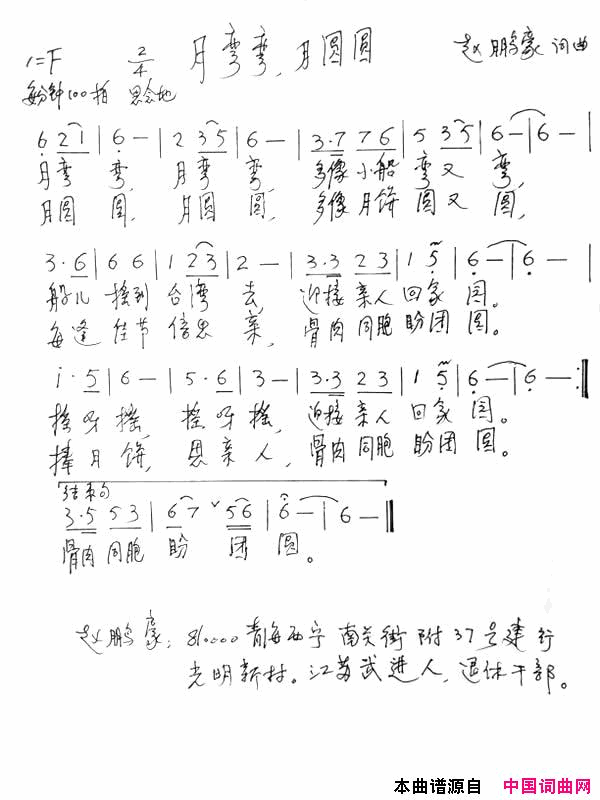 月弯弯，月圆圆
1=F 2/4 赵鹏豪 词曲
每分钟100拍 思念地
6 2 1 | 6 — | 2 3 5 | 6 — | 3·7 7 6 | 5 3 5 | 6 — | 6 — |
月弯 弯， 月弯 弯， 多像小船 弯又 弯，
月圆 圆， 月圆 圆， 多像月饼 圆又 圆，
3·6 | 6 6 | 1 2 3 | 2 — | 3·3 2 3 | 1 5 | 6 — | 6 — |
船儿 摇到 台湾 去， 迎接亲人 回家 园。
每逢 佳节 倍思 亲， 骨肉同胞 盼团 圆。
i·5 | 6 — | 5·6 | 3 — | 3·3 2 3 | 1 5 | 6 — | 6 — :‖
摇呀 摇， 摇呀 摇， 迎接亲人 回家 园。
捧月 饼， 思亲 人， 骨肉同胞 盼团 圆。
结束句
3·5 5 3 | 6 7 ˅ 5 6 | 6 — | 6 — ‖
骨肉 同胞 盼 团 圆。
赵鹏豪：810000 青海西宁 南关街 附37号建行
光明新村。江苏武进人，退休干部。
本曲谱源自 中国词曲网